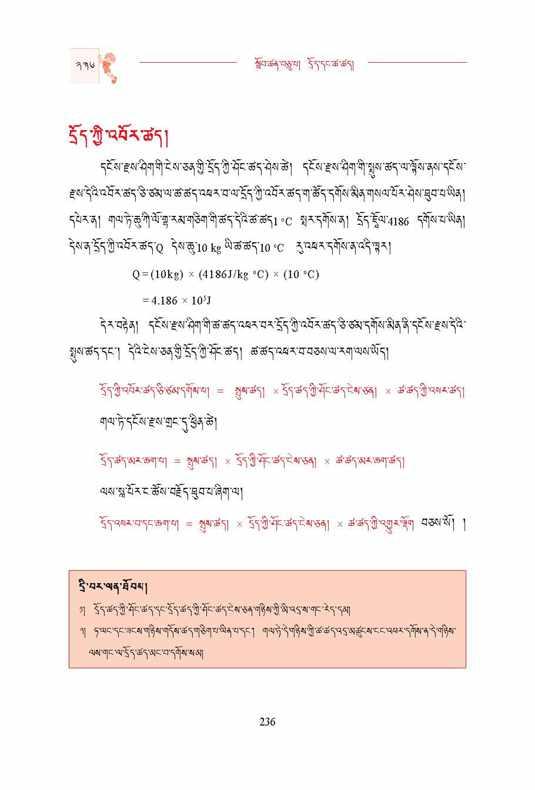 ༢༣༦
སློབ་ཚན་བཅུ་པ། དྲོད་དང་ཚ་ཚད།
དྲོད་ཀྱི་འབོར་ཚད།
དངོས་རྫས་ཤིག་གི་ངེས་ཅན་གྱི་དྲོད་ཀྱི་ཤོང་ཚད་ཤེས་ཚེ། དངོས་རྫས་ཤིག་གི་སྨུས་ཚད་ལ་ལྟོས་ནས་དངོས་
རྫས་དེའི་འབོར་ཚད་ཅི་ཙམ་ལ་ཚ་ཚད་འཕར་བ་ལ་དྲོད་ཀྱི་འབོར་ཚད་ག་ཚོད་དགོས་མིན་གསལ་པོར་ཤེས་ཐུབ་པ་ཡིན།
དཔེར་ན། གལ་ཏེ་ཆུ་ཀི་ལོ་གྷ་རམ་གཅིག་གི་ཚད་དེའི་ཚ་ཚད1 °C སྤར་དགོས་ན། དྲོད་ཇཱུལ་4186 དགོས་པ་ཡིན།
དེས་ན་དྲོད་ཀྱི་འབོར་ཚད་Q དེས་ཆུ་10 kg ཡི་ཚ་ཚད་10 °C རུ་འཕར་དགོས་ན་འདི་ལྟར།
Q = (10kg) × (4186J/kg °C) × (10 °C)
= 4.186 × 10⁵J
དེར་བརྟེན། དངོས་རྫས་ཤིག་གི་ཚ་ཚད་འཕར་བར་དྲོད་ཀྱི་འབོར་ཚད་ཅི་ཙམ་དགོས་མིན་ནི་དངོས་རྫས་དེའི་
སྨུས་ཚད་དང་། དེའི་ངེས་ཅན་གྱི་དྲོད་ཀྱི་ཤོང་ཚད། ཚ་ཚད་འཕར་བ་བཅས་ལ་རག་ལས་ཡོད།
དྲོད་ཀྱི་འབོར་ཚད་ཅི་ཙམ་དགོས་པ། = སྨུས་ཚད། × དྲོད་ཀྱི་ཤོང་ཚད་ངེས་ཅན། × ཚ་ཚད་ཀྱི་འཕར་ཚད།
གལ་ཏེ་དངོས་རྫས་གྲང་དུ་ཕྱིན་ཚེ།
དྲོད་ཚད་མར་ཆག་པ། = སྨུས་ཚད། × དྲོད་ཀྱི་ཤོང་ཚད་ངེས་ཅན། × ཚ་ཚད་མར་ཆག་ཚད།
ལས་སླ་པོར་ང་ཚོས་བརྗོད་ཐུབ་པ་ཞིག་ལ།
དྲོད་འཕར་བ་དང་ཆག་པ། = སྨུས་ཚད། × དྲོད་ཀྱི་ཤོང་ཚད་ངེས་ཅན། × ཚ་ཚད་ཀྱི་འགྱུར་ལྡོག བཅས་སོ། །
དྲི་བར་ལན་ཐོབས།
༡། དྲོད་ཚད་ཀྱི་ཤོང་ཚད་དང་དྲོད་ཚད་ཀྱི་ཤོང་ཚད་ངེས་ཅན་གཉིས་ཀྱི་མི་འདྲ་ས་གང་རེད་དམ།
༢། ཧ་ཡང་དང་ཟངས་གཉིས་གདོས་ཚད་གཅིག་པ་ཡིན་པ་དང་། གལ་ཏེ་དེ་གཉིས་ཀྱི་ཚ་ཚད་འདྲ་མཚུངས་ངང་འཕར་དགོས་ན་དེ་གཉིས་
ལས་གང་ལ་དྲོད་ཚད་མང་བ་དགོས་སམ།
236